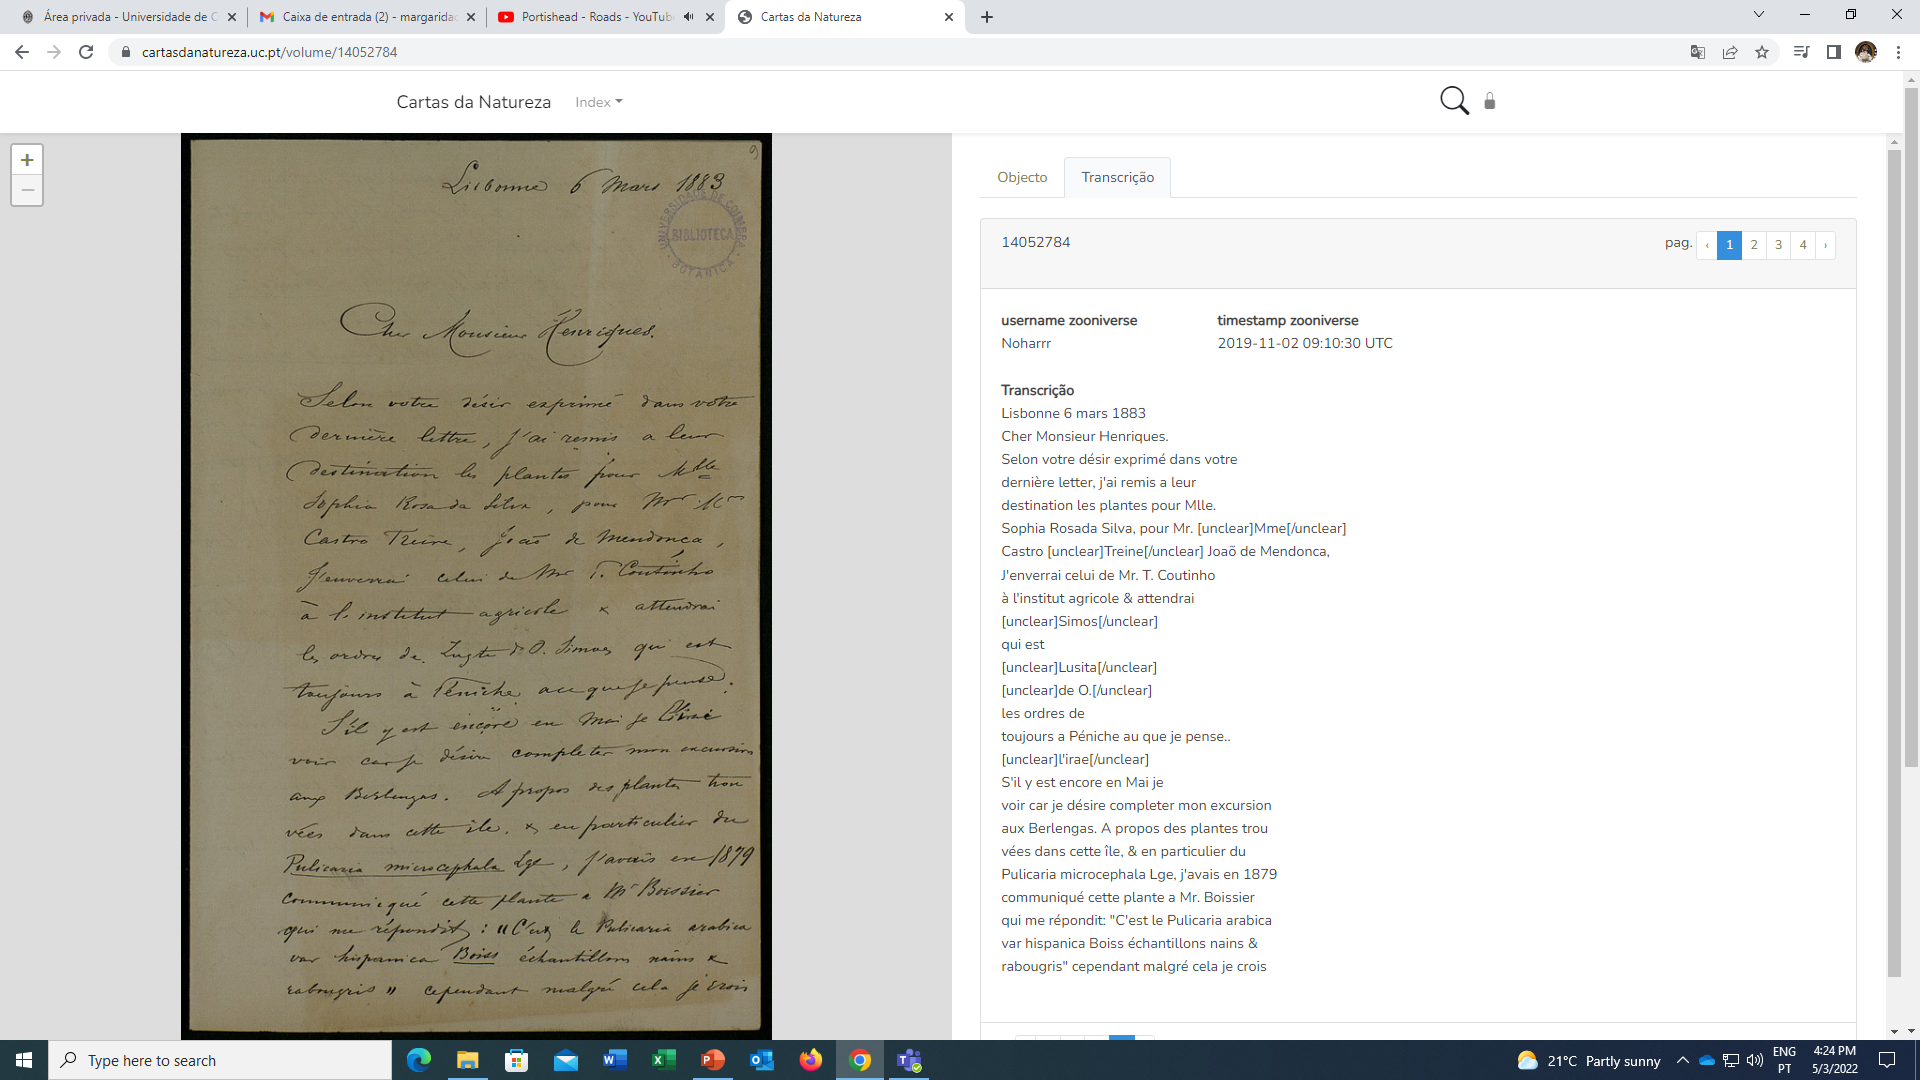 Área privada - Universidade de C
Caixa de entrada (2) - margarida
Portishead - Roads - YouTube
Cartas da Natureza
cartasdanatureza.uc.pt/volume/14052784
Cartas da Natureza
Index
+
−
9
Lisbonne 6 Mars 1883
UNIVERSIDADE DE COIMBRA
BIBLIOTECA
BOTANICA
Cher Monsieur Henriques.
Selon votre désir exprimé dans votre
dernière lettre, j'ai remis a leur
destination les plantes pour Mlle
Sophia Rosa da Silva, pour Mrs
Castro Freire, João de Mendonca,
J'enverrai celui de Mr T. Coutinho
à l'institut agricole & attendrai
les ordres de D. Simoes qui est
toujours à Péniche a ce que je pense.
S'il y est encore en Mai je l'irai
voir car je désire completer mon excursion
aux Berlengas. A propos des plantes trou
vées dans cette île, & en particulier du
Pulicaria microcephala Lge, j'avais en 1879
communiqué cette plante a Mr Boissier
qui me répondit : "C'est le Pulicaria arabica
var hispanica Boiss échantillons nains &
rabougris" cependant malgré cela je crois
Objecto
Transcrição
14052784
pag. ‹ 1 2 3 4 ›
username zooniverse timestamp zooniverse
Noharrr 2019-11-02 09:10:30 UTC
Transcrição
Lisbonne 6 mars 1883
Cher Monsieur Henriques.
Selon votre désir exprimé dans votre
dernière letter, j'ai remis a leur
destination les plantes pour Mlle.
Sophia Rosada Silva, pour Mr. [unclear]Mme[/unclear]
Castro [unclear]Treine[/unclear] Joaõ de Mendonca,
J'enverrai celui de Mr. T. Coutinho
à l'institut agricole & attendrai
[unclear]Simos[/unclear]
qui est
[unclear]Lusita[/unclear]
[unclear]de O.[/unclear]
les ordres de
toujours a Péniche au que je pense..
[unclear]l'irae[/unclear]
S'il y est encore en Mai je
voir car je désire completer mon excursion
aux Berlengas. A propos des plantes trou
vées dans cette île, & en particulier du
Pulicaria microcephala Lge, j'avais en 1879
communiqué cette plante a Mr. Boissier
qui me répondit: "C'est le Pulicaria arabica
var hispanica Boiss échantillons nains &
rabougris" cependant malgré cela je crois
Type here to search
21°C Partly sunny
ENG
PT
4:24 PM
5/3/2022